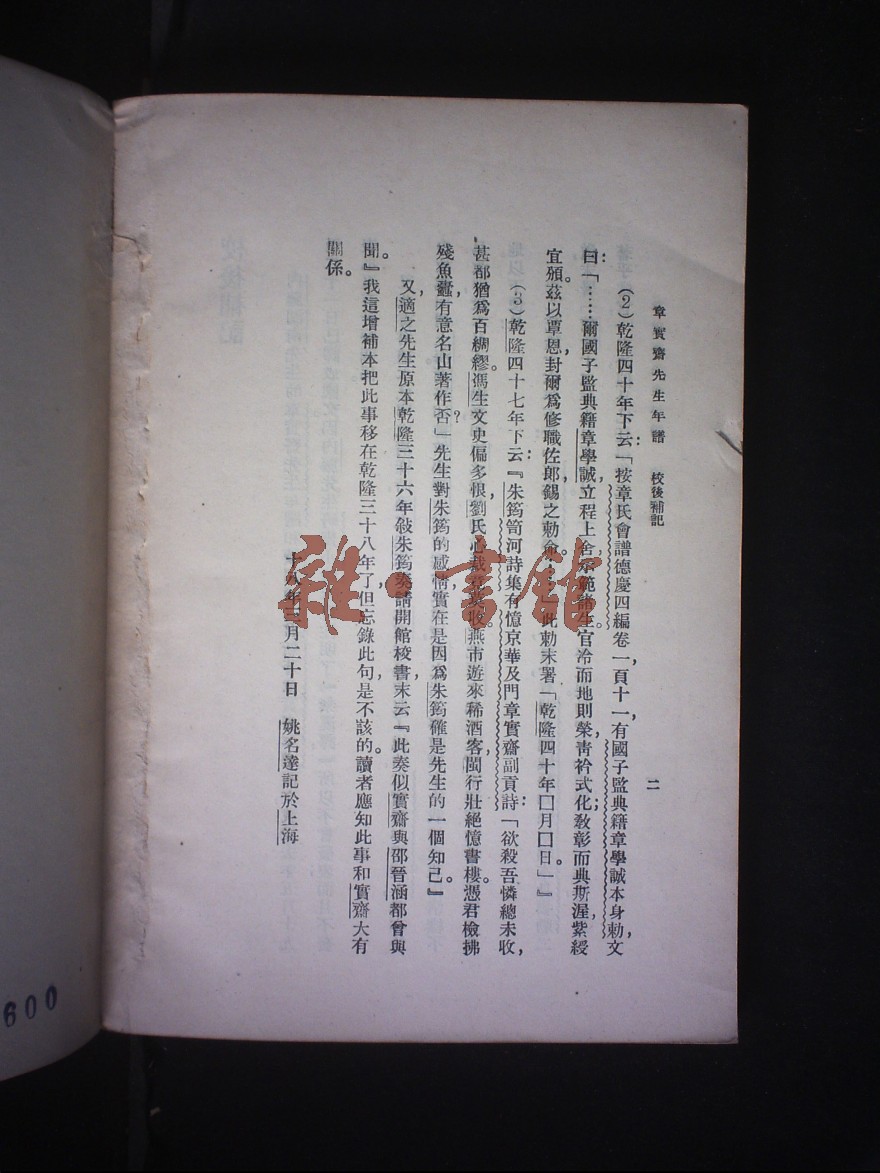 章實齋先生年譜 校後補記
二
(2)乾隆四十年下云:「按章氏會譜德慶四編卷一頁十一有國子監典籍章學誠本身勅文
曰「……爾國子監典籍章學誠,立程上舍,示範諸生。官冷而地則榮,青衿式化;教彰而典斯渥,紫綬
宜頒。茲以覃恩,封爾爲修職佐郎,錫之勅命。…」此勅末署「乾隆四十年囗月囗日。」』
(3)乾隆四十七年下云:『朱筠笥河詩集有憶京華及門章實齋副貢詩:「欲殺吾憐總未收,
甚都猶爲百綢繆。馮生文史偏多恨,劉氏心裁 莫收。燕市遊來稀酒客,閩行壯絕憶書樓。憑君檢拂
殘魚蠹,有意名山著作否?」先生對朱筠的感情,實在是因爲朱筠確是先生的一個知己。』
又,適之先生原本乾隆三十六年敍朱筠奏請開館校書,末云『此奏似實齋與邵晉涵都曾與
聞。』我這增補本把此事移在乾隆三十八年了,但忘錄此句,是不該的。讀者應知此事和實齋大有
關係。
十八年 月二十日 姚名達記於上海
雜·書館
600